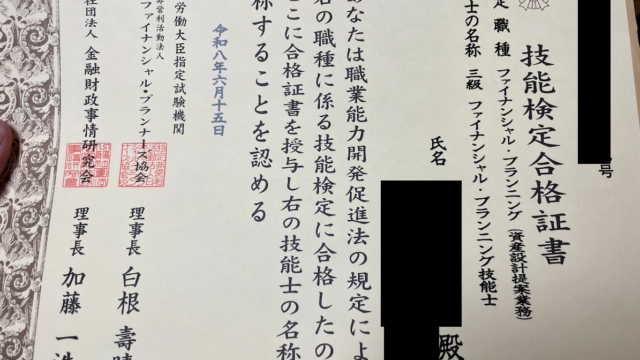 号
技能検定合格証書
定職種 ファイナンシャル・プランニング（資産設計提案業務）
士の名称 三級 ファイナンシャル・プランニング技能士
氏名
殿
あなたは職業能力開発促進法の規定によ
名の職種に係る技能検定に合格したの
ここに合格証書を授与し右の技能士の名称
称することを認める
令和八年六月十五日
労働大臣指定試験機関
非営利活動法人
ファイナンシャル・プランナーズ協会
理事長 白根 壽晴
社団法人 金融財政事情研究会
理事長 加藤 一浩